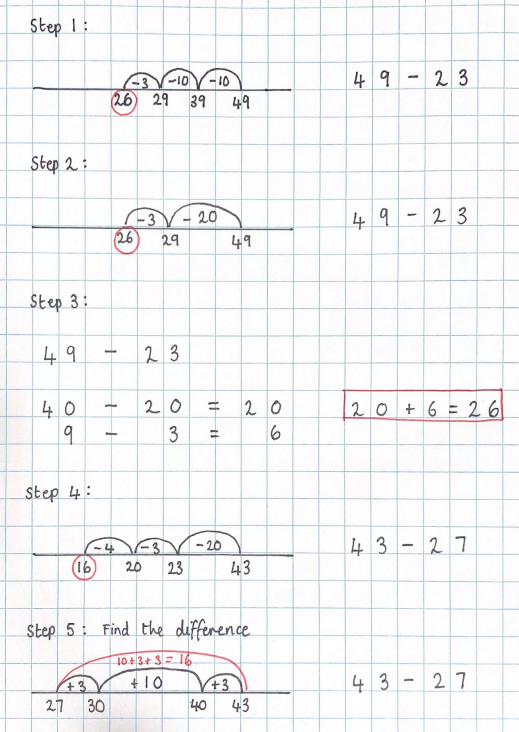 Step 1:
-3 -10 -10
26 29 39 49
49 - 23
Step 2:
-3 - 20
26 29 49
49 - 23
Step 3:
49 - 23
40 - 20 = 20
9 - 3 = 6
20 + 6 = 26
Step 4:
-4 -3 -20
16 20 23 43
43 - 27
Step 5: Find the difference
10+3+3=16
+3 +10 +3
27 30 40 43
43 - 27